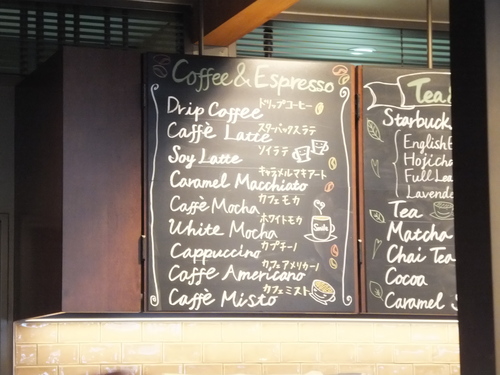 Coffee & Espresso
Drip Coffee ドリップコーヒー
Caffè Latte スターバックスラテ
Soy Latte ソイラテ
Caramel Macchiato キャラメルマキアート
Caffè Mocha カフェモカ
White Mocha ホワイトモカ
Cappuccino カプチーノ
Caffè Americano カフェアメリカーノ
Caffè Misto カフェミスト
Smile
Tea
Starbuck
English
Hojicha
Full Lea
Lavende
Tea
Matcha
Chai Tea
Cocoa
Caramel S